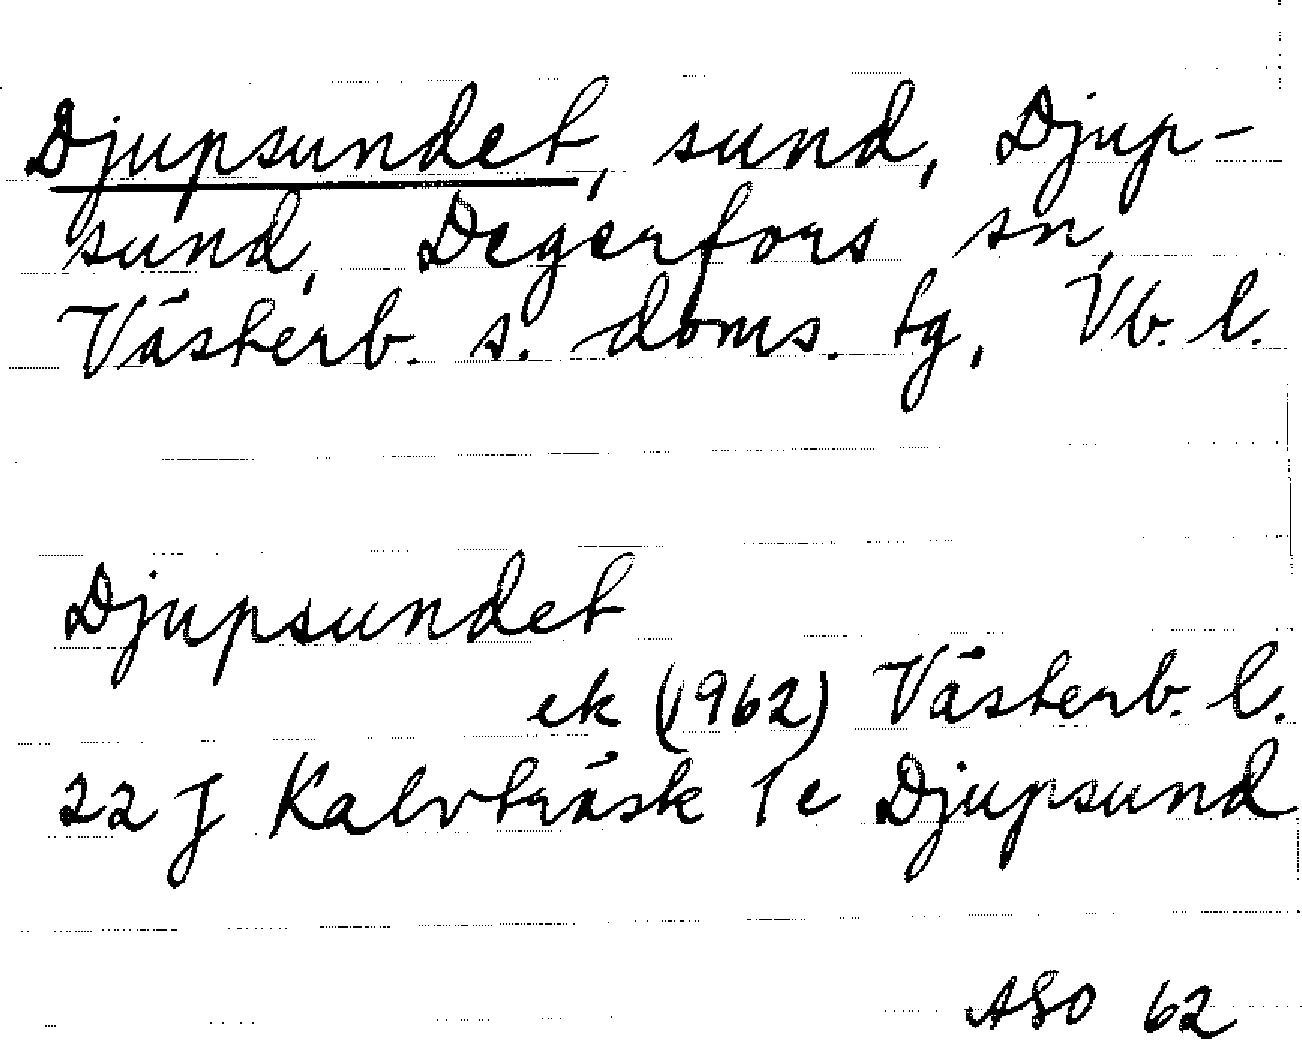 Djupsundet, sund, Djup-
sund, Degerfors sn,
Västerb. s. doms. tg, Vb. l.
Djupsundet
ek (1962) Västerb. l.
22 J Kalvträsk 1e Djupsund
ASO 62